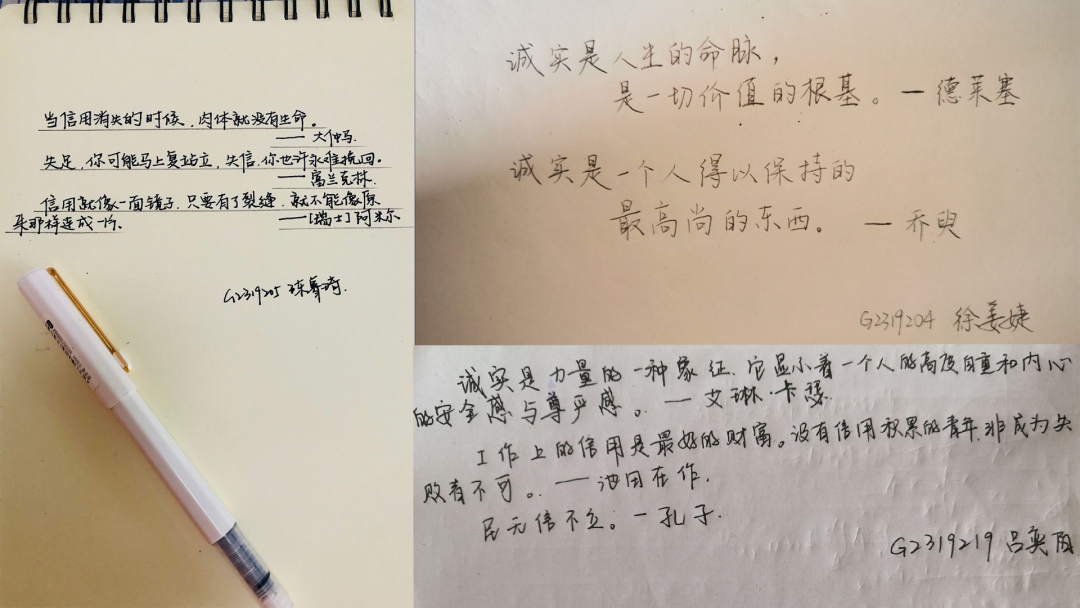 当信用消失的时候,肉体就没有生命。
—— 大仲马.
失足,你可能马上复站立,失信,你也许永难挽回。
—— 富兰克林.
信用就像一面镜子,只要有了裂缝,就不能像原
来那样连成一片。
——[瑞士]阿米尔
G2319205
诚实是人生的命脉,
是一切价值的根基。—德莱塞
诚实是一个人得以保持的
最高尚的东西。 —乔叟
G2319204 徐姜婕
诚实是力量的一种象征,它显示着一个人的高度自重和内心
的安全感与尊严感。—艾琳·卡瑟.
工作上的信用是最好的财富。没有信用积累的青年,非成为失
败者不可。——池田在作.
民无信不立。—孔子.
G2319219 吕奕阳